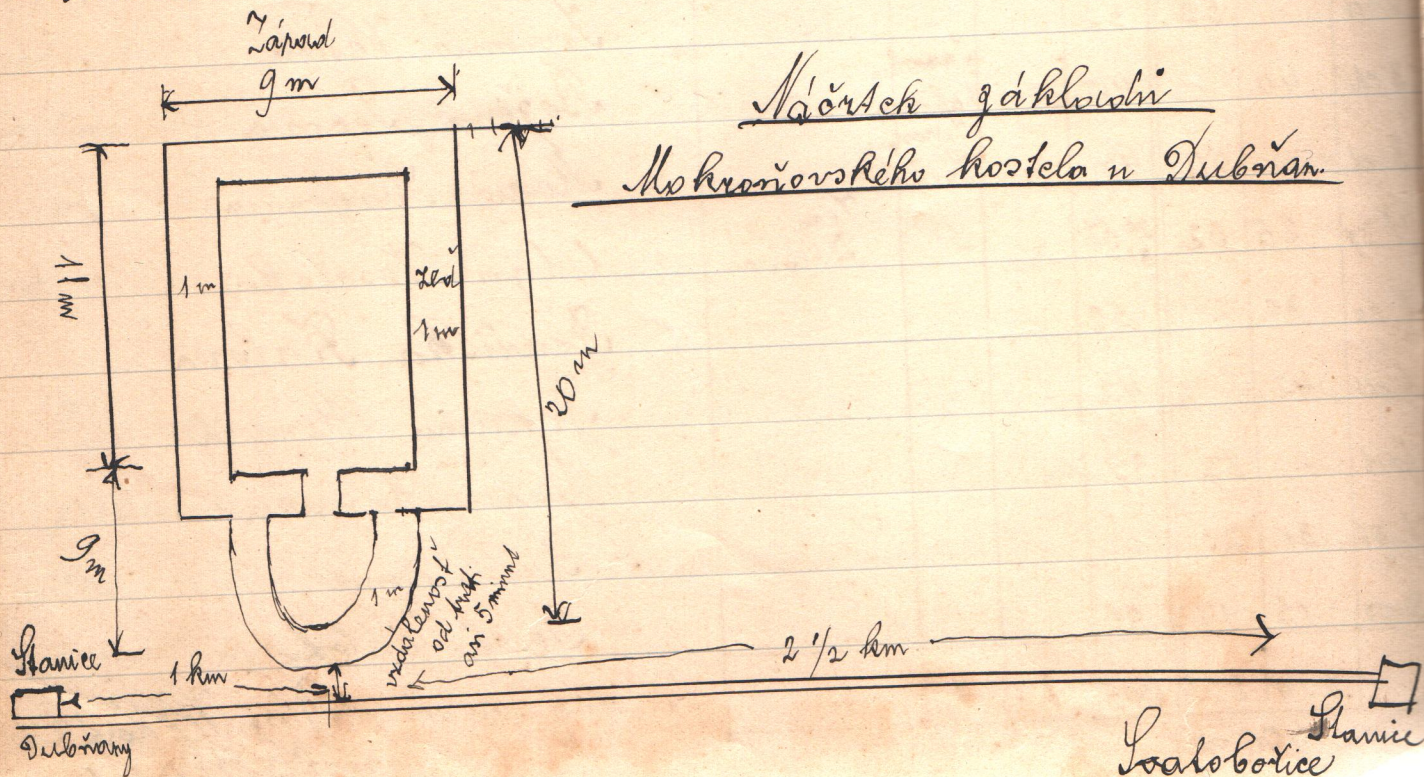 Západ
9 m
Náčrtek základů
Mokroňovského kostela u Dubňan.
11 m
1 m
zeď
1 m
20 m
9 m
1 m
vzdálenost
od trati
asi 5 minut
Stanice
1 km
2 1/2 km
Dubňany
Stanice
Svatobořice